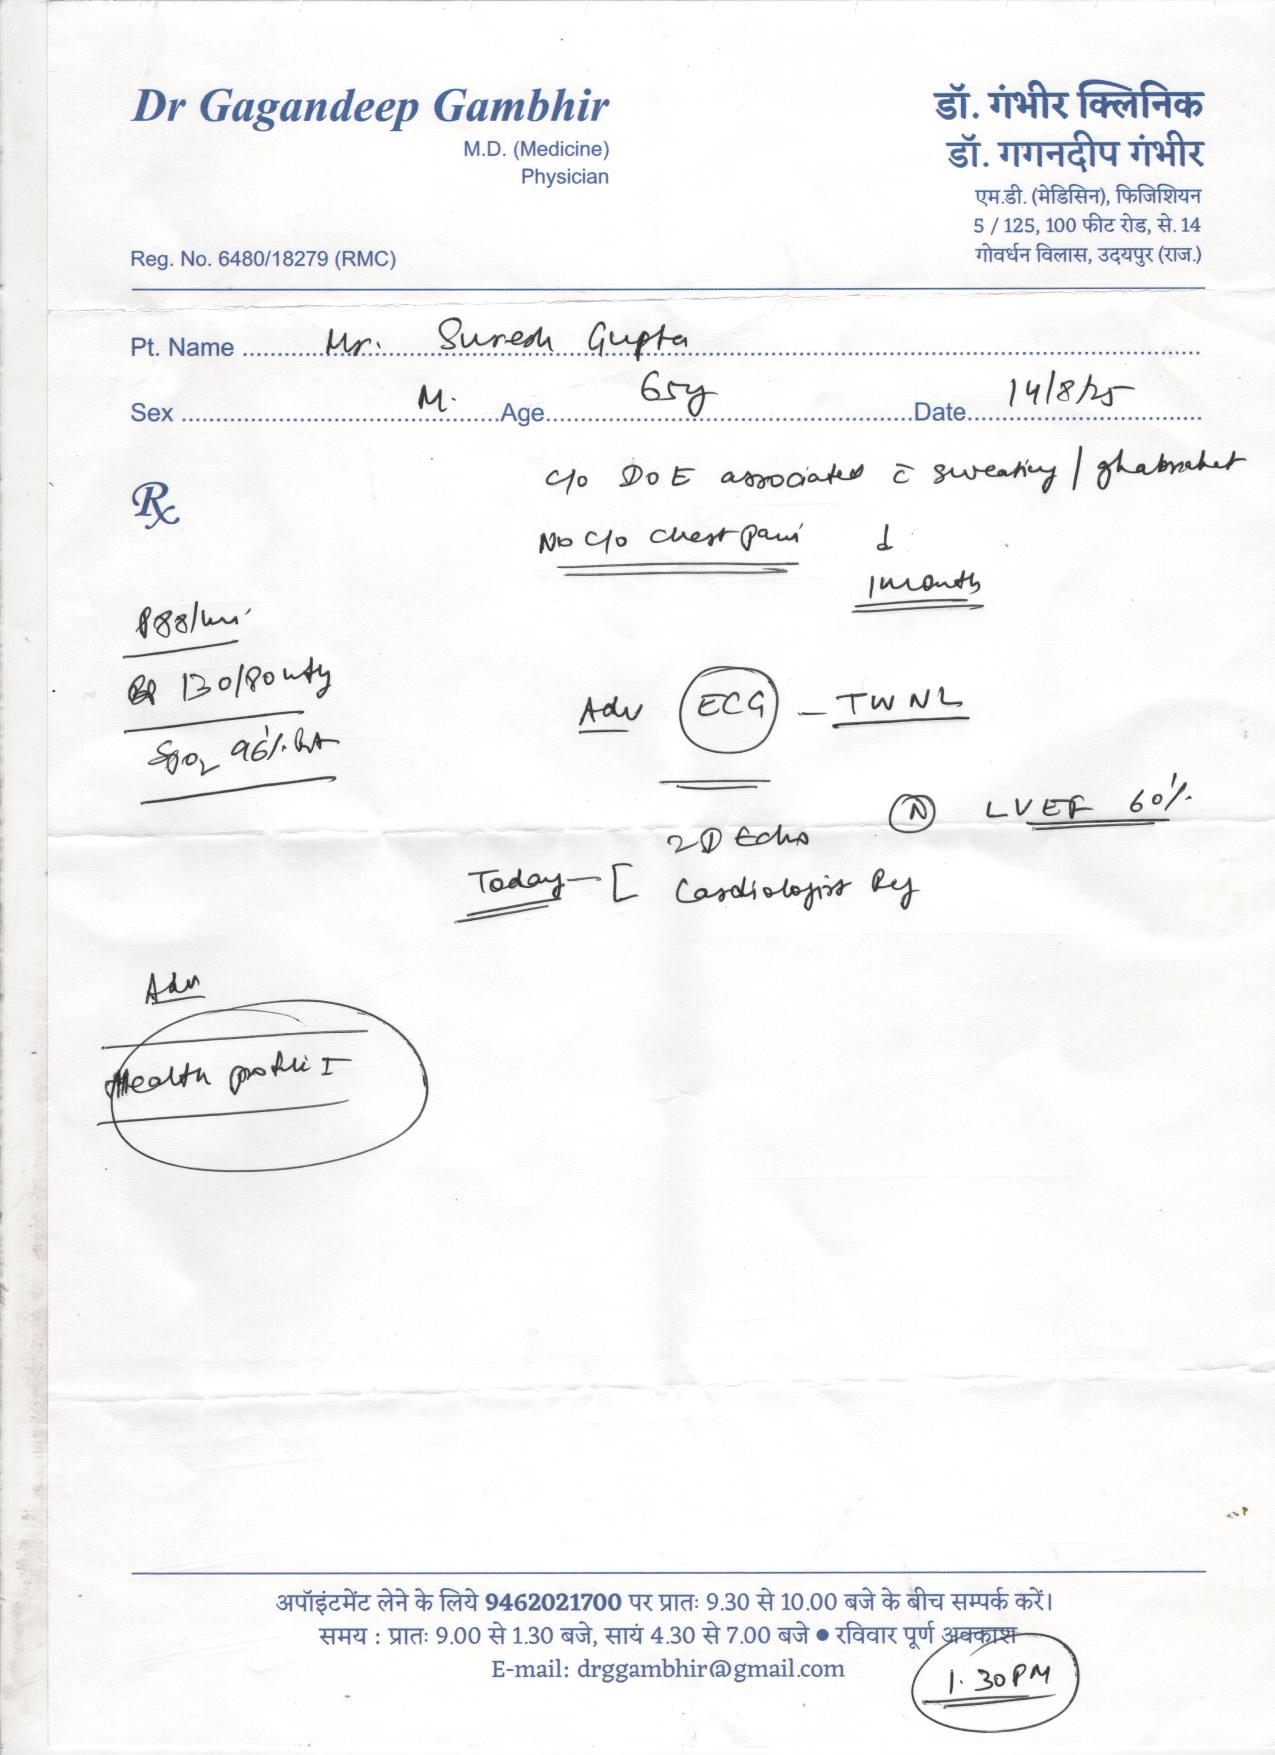 Dr Gagandeep Gambhir
M.D. (Medicine)
Physician
Reg. No. 6480/18279 (RMC)
डॉ. गंभीर क्लिनिक
डॉ. गगनदीप गंभीर
एम.डी. (मेडिसिन), फिजिशियन
5 / 125, 100 फीट रोड, से. 14
गोवर्धन विलास, उदयपुर (राज.)
Pt. Name Mr. Suresh Gupta
Sex M. Age 65y Date 14/8/25
Rx
c/o DOE associated c̄ sweating / ghabrahat
No c/o chest pain
1 month
P 88/min
BP 130/80 mmHg
SpO2 96% RA
Adv ECG - TWNL
2D Echo (N) LVEF 60%
Today - [ Cardiologist Ref
Adv
Health profile I
अपॉइंटमेंट लेने के लिये 9462021700 पर प्रातः 9.30 से 10.00 बजे के बीच सम्पर्क करें।
समय : प्रातः 9.00 से 1.30 बजे, सायं 4.30 से 7.00 बजे ● रविवार पूर्ण अवकाश
E-mail: drggambhir@gmail.com
1.30PM